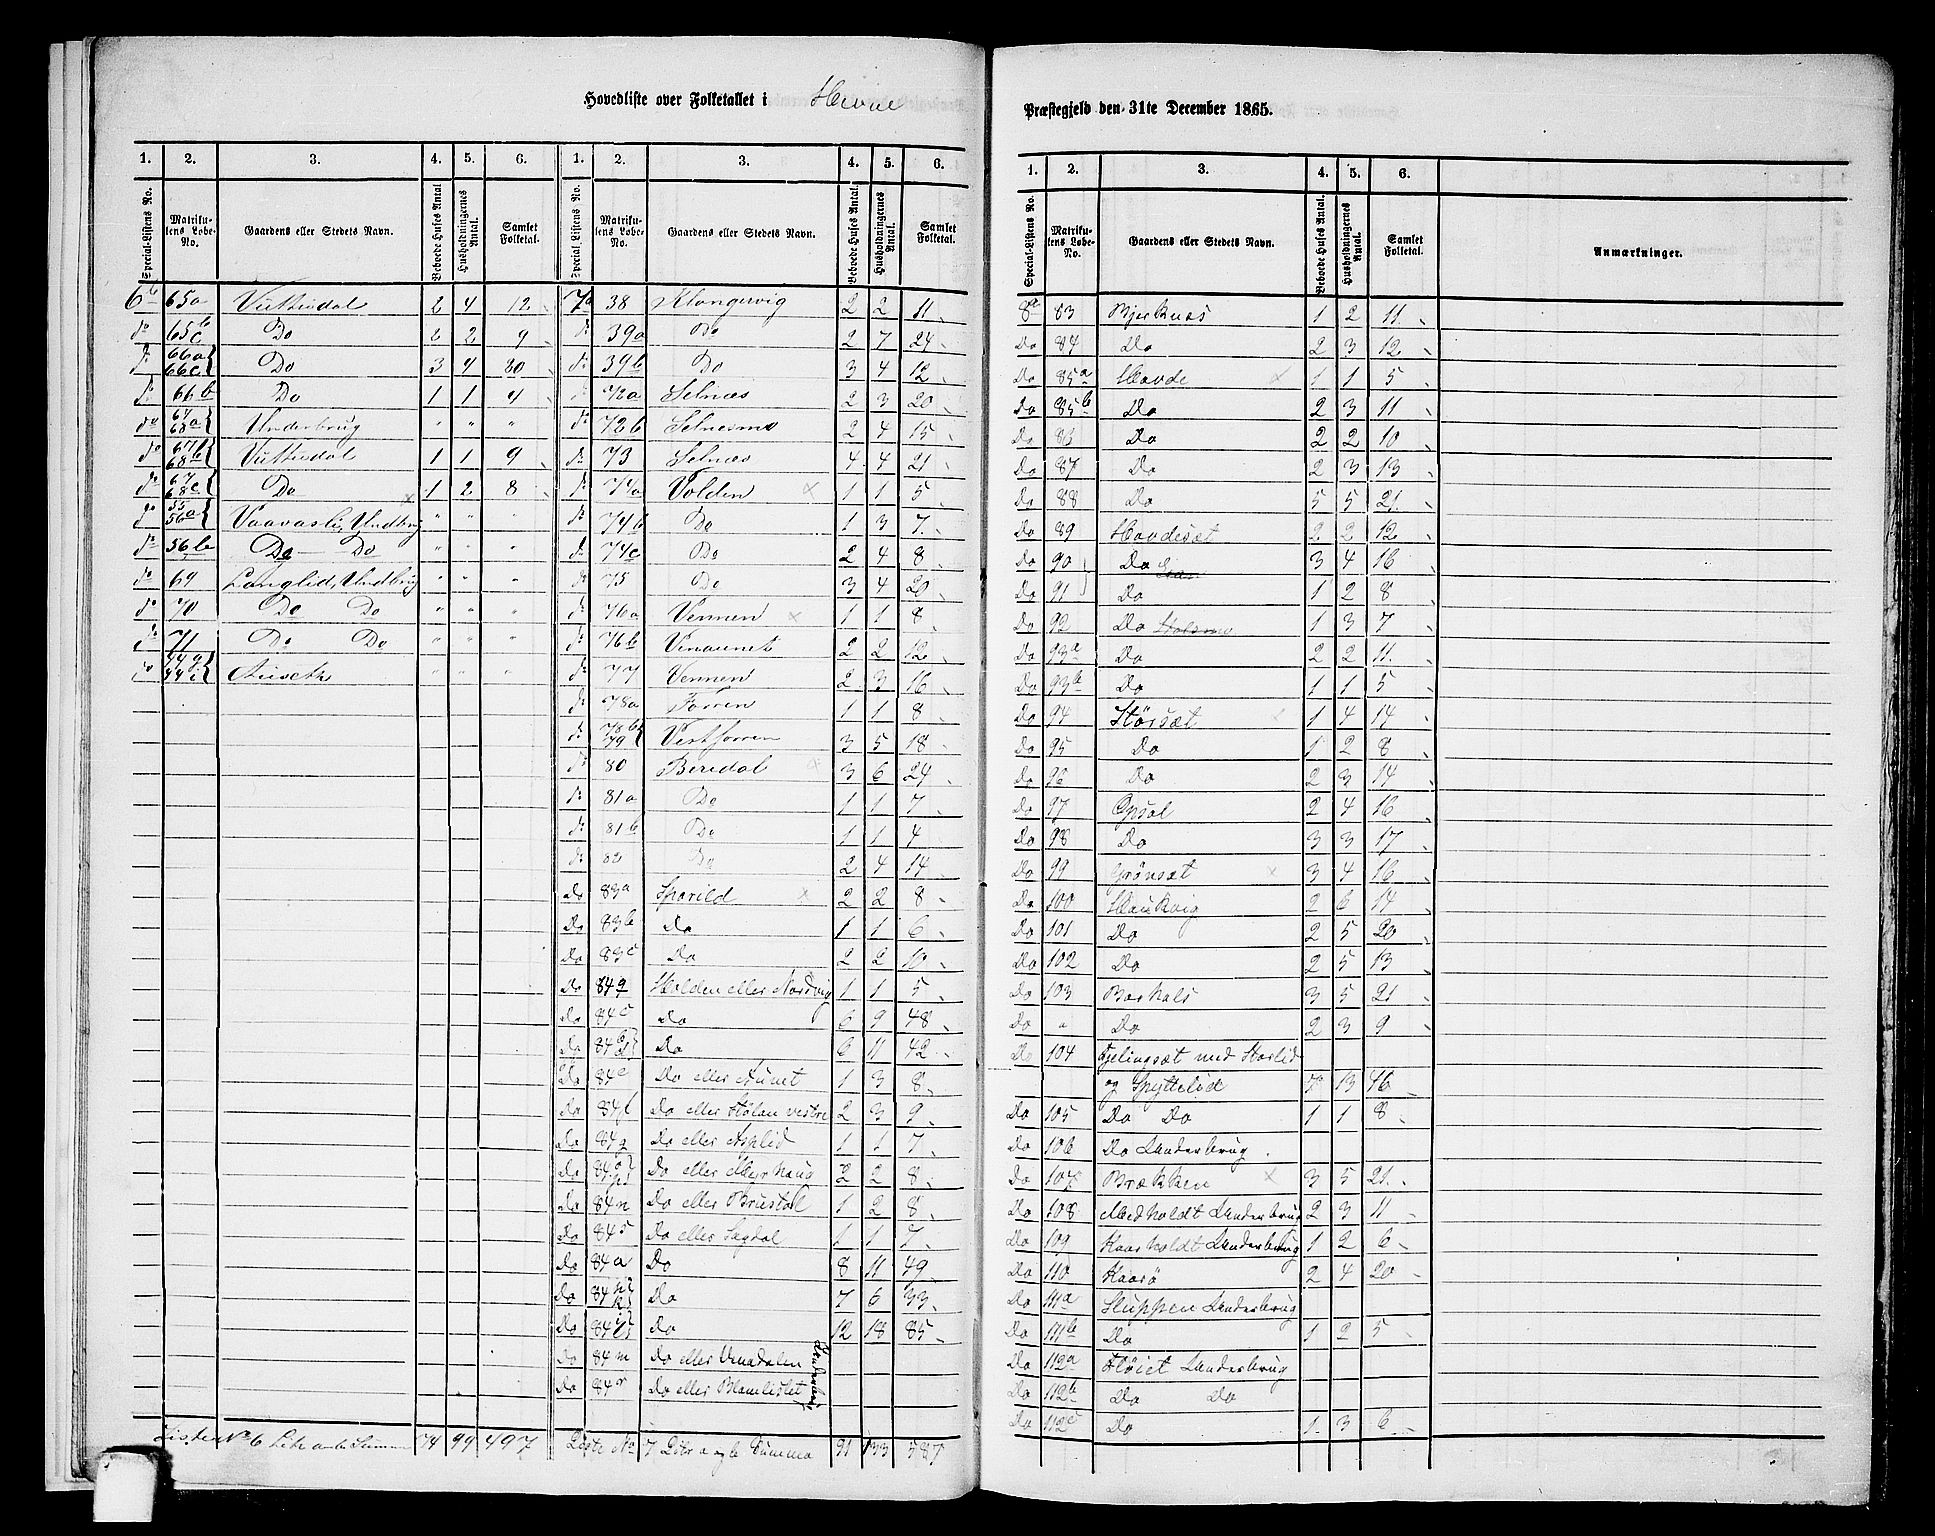 Hovedliste over Folketallet i Hevne
1. 2. 3. 4. 5. 6. 1. 2. 3. 4. 5. 6.
Special-Listens No. Matrikulens Løbe-No. Gaardens eller Stedets Navn. Beboede Huses Antal Husholdningernes Antal. Samlet Folketal. Special Listens No. Matrikulens Løbe-No. Gaardens eller Stedets Navn. Beboede Huses Antal. Husholdningernes Antal. Samlet Folketal.
6b 65a Vuttudal 2 4 12
do 65b c Do 2 2 9
do 66a 66c Do 3 4 30
do 66b Do 1 1 4
do 67a 68a Underbrug " " "
do 67b 68b Vuttudal 1 1 9
do 67c 68c Do 1 2 8
do 55 56a Vaavasli, Undbrug " " "
do 56b Do Do " " "
do 69 Langlid, Undbrug " " "
do 70 Do Do " " "
do 71 Do Do " " "
do 44g 44i Aunseth " " "
Listen No 6 Litr a & b Summa 74 99 497
7a 38 Klongevig 2 2 11
do 39a Do 2 7 24
do 39b Do 3 4 12
do 72a Selnæs 2 3 20
do 72b Selnesmo 2 4 15
do 73 Selnæs 4 4 21
do 74a Volden 1 1 5
do 74b Do 1 3 7
do 74c Do 2 4 8
do 75 Do 3 4 20
do 76a Vennen 1 1 8
do 76b Vinaunet 2 2 12
do 77 Vennen 2 3 16
do 78a Forren 1 1 8
do 78b 79 Vestforren 3 5 18
do 80 Beredal 3 6 24
do 81a Do 1 1 7
do 81b Do 1 1 4
do 82 Do 2 4 14
Do 83a Sporild 2 2 8
Do 83b Do 1 1 6
Do 83c Do 2 2 10
Do 84q Holden eller Nordvig 1 1 5
Do 84c Do 6 9 48
Do 84b d Do 6 11 42
Do 84e Do eller Aunet 1 3 8
Do 84f Do eller Stølan vestre 2 3 9
Do 84g Do eller Asplid 1 1 7
Do 84 Do eller Myrhaug 2 2 8
Do 84n Do eller Brustøl 1 2 8
Do 84s Do eller Sagdal 1 1 7
Do 84a Do 8 11 49
Do 84 Do 7 6 33
Do 84 Do 12 18 85
Do 84m Do eller Vendalen
Do 84r Do eller Blomlislet Underbrug
Liste No 7 Litr a og b Summa 91 133 587
Præstegjeld den 31te December 1865.
1. 2. 3. 4. 5. 6.
Special-Listens No. Matrikulens Løbe-No. Gaardens eller Stedets Navn. Beboede Huses Antal. Husholdningernes Antal. Samlet Folketal. Anmærkninger.
8a 83 Bjerknæs 1 2 11
Do 84 Do 2 3 12
Do 85a Hovde 1 1 5
Do 85b Do 2 3 11
Do 83 Do 2 2 10
Do 87 Do 2 3 13
Do 88 Do 5 5 21
Do 89 Hovdesæt 2 2 12
Do 90 Do 3 4 16
Do 91 Do 1 2 8
Do 92 Do Holsmo 1 3 7
Do 93a Do 2 2 11
Do 93b Do 1 1 5
Do 94 Størsæt 1 4 14
Do 95 Do 1 2 8
Do 96 Do 2 3 14
Do 97 Opsal 2 4 16
Do 98 Do 3 3 17
Do 99 Grønsæt 3 4 16
Do 100 Haukvig 2 6 14
Do 101 Do 2 5 20
Do 102 Do 2 5 13
Do 103 Barhals 3 5 21
Do " Do 2 3 9
Do 104 Fjelingsæt med Storlid
og Spyttelid 7 13 46
Do 105 Do Do 1 1 8
Do 106 Do Underbrug
Do 107 Brækken 3 5 21
Do 108 Medholdt Underbrug 2 3 11
Do 109 Kaarholdt Underbrug 1 2 6
Do 110 Kaarø 2 4 20
Do 111a Sluppen Underbrug
Do 111b Do 1 2 5
Do 112a Fløiet Underbrug
Do 112b Do Do
Do 112c Do 1 3 6